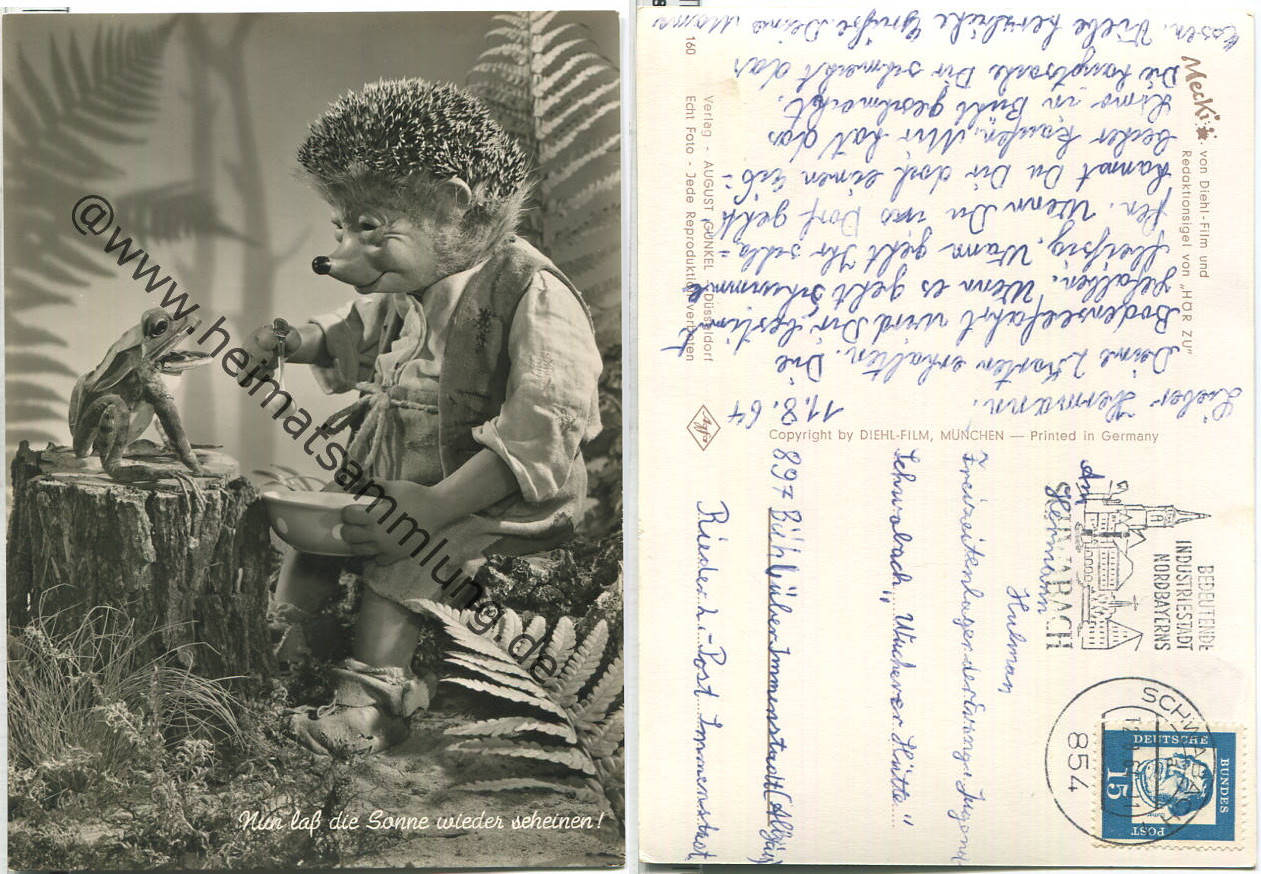 @www.heimatsammlung.de
Nun laß die Sonne wieder scheinen!
Mecki
von Diehl-Film und
Redaktionsigel von „HÖR ZU"
160
Verlag - AUGUST GUNKEL - Düsseldorf
Echt Foto - Jede Reproduktion verboten
Agfa
Copyright by DIEHL-FILM, MÜNCHEN — Printed in Germany
11.8.64
Lieber Hermann.
Deine 2 Karten erhalten. Die
Bodenseefahrt wird Dir bestimmt
gefallen. Wenn es geht schwimme
fleißig. Wann geht Ihr schla=
fen. Wenn Du ins Dorf gehst
kannst Du Dir doch einen Eis=
becher kaufen. Mir hat das
Limo in Bühl geschmeckt.
Die Hauptsache Dir schmeckt das
Essen. Viele herzliche Grüße Deine Mama
BEDEUTENDE
INDUSTRIESTADT
NORDBAYERNS
SCHWABACH
SCHWABACH
854
DEUTSCHE
BUNDES
POST
15
An
Hermann
Freizeitenlager der Evang. Jugend
Schwabach „Wucherer Hütte"
897 Bühl über Immenstadt (Allgäu)
Post Immenstadt